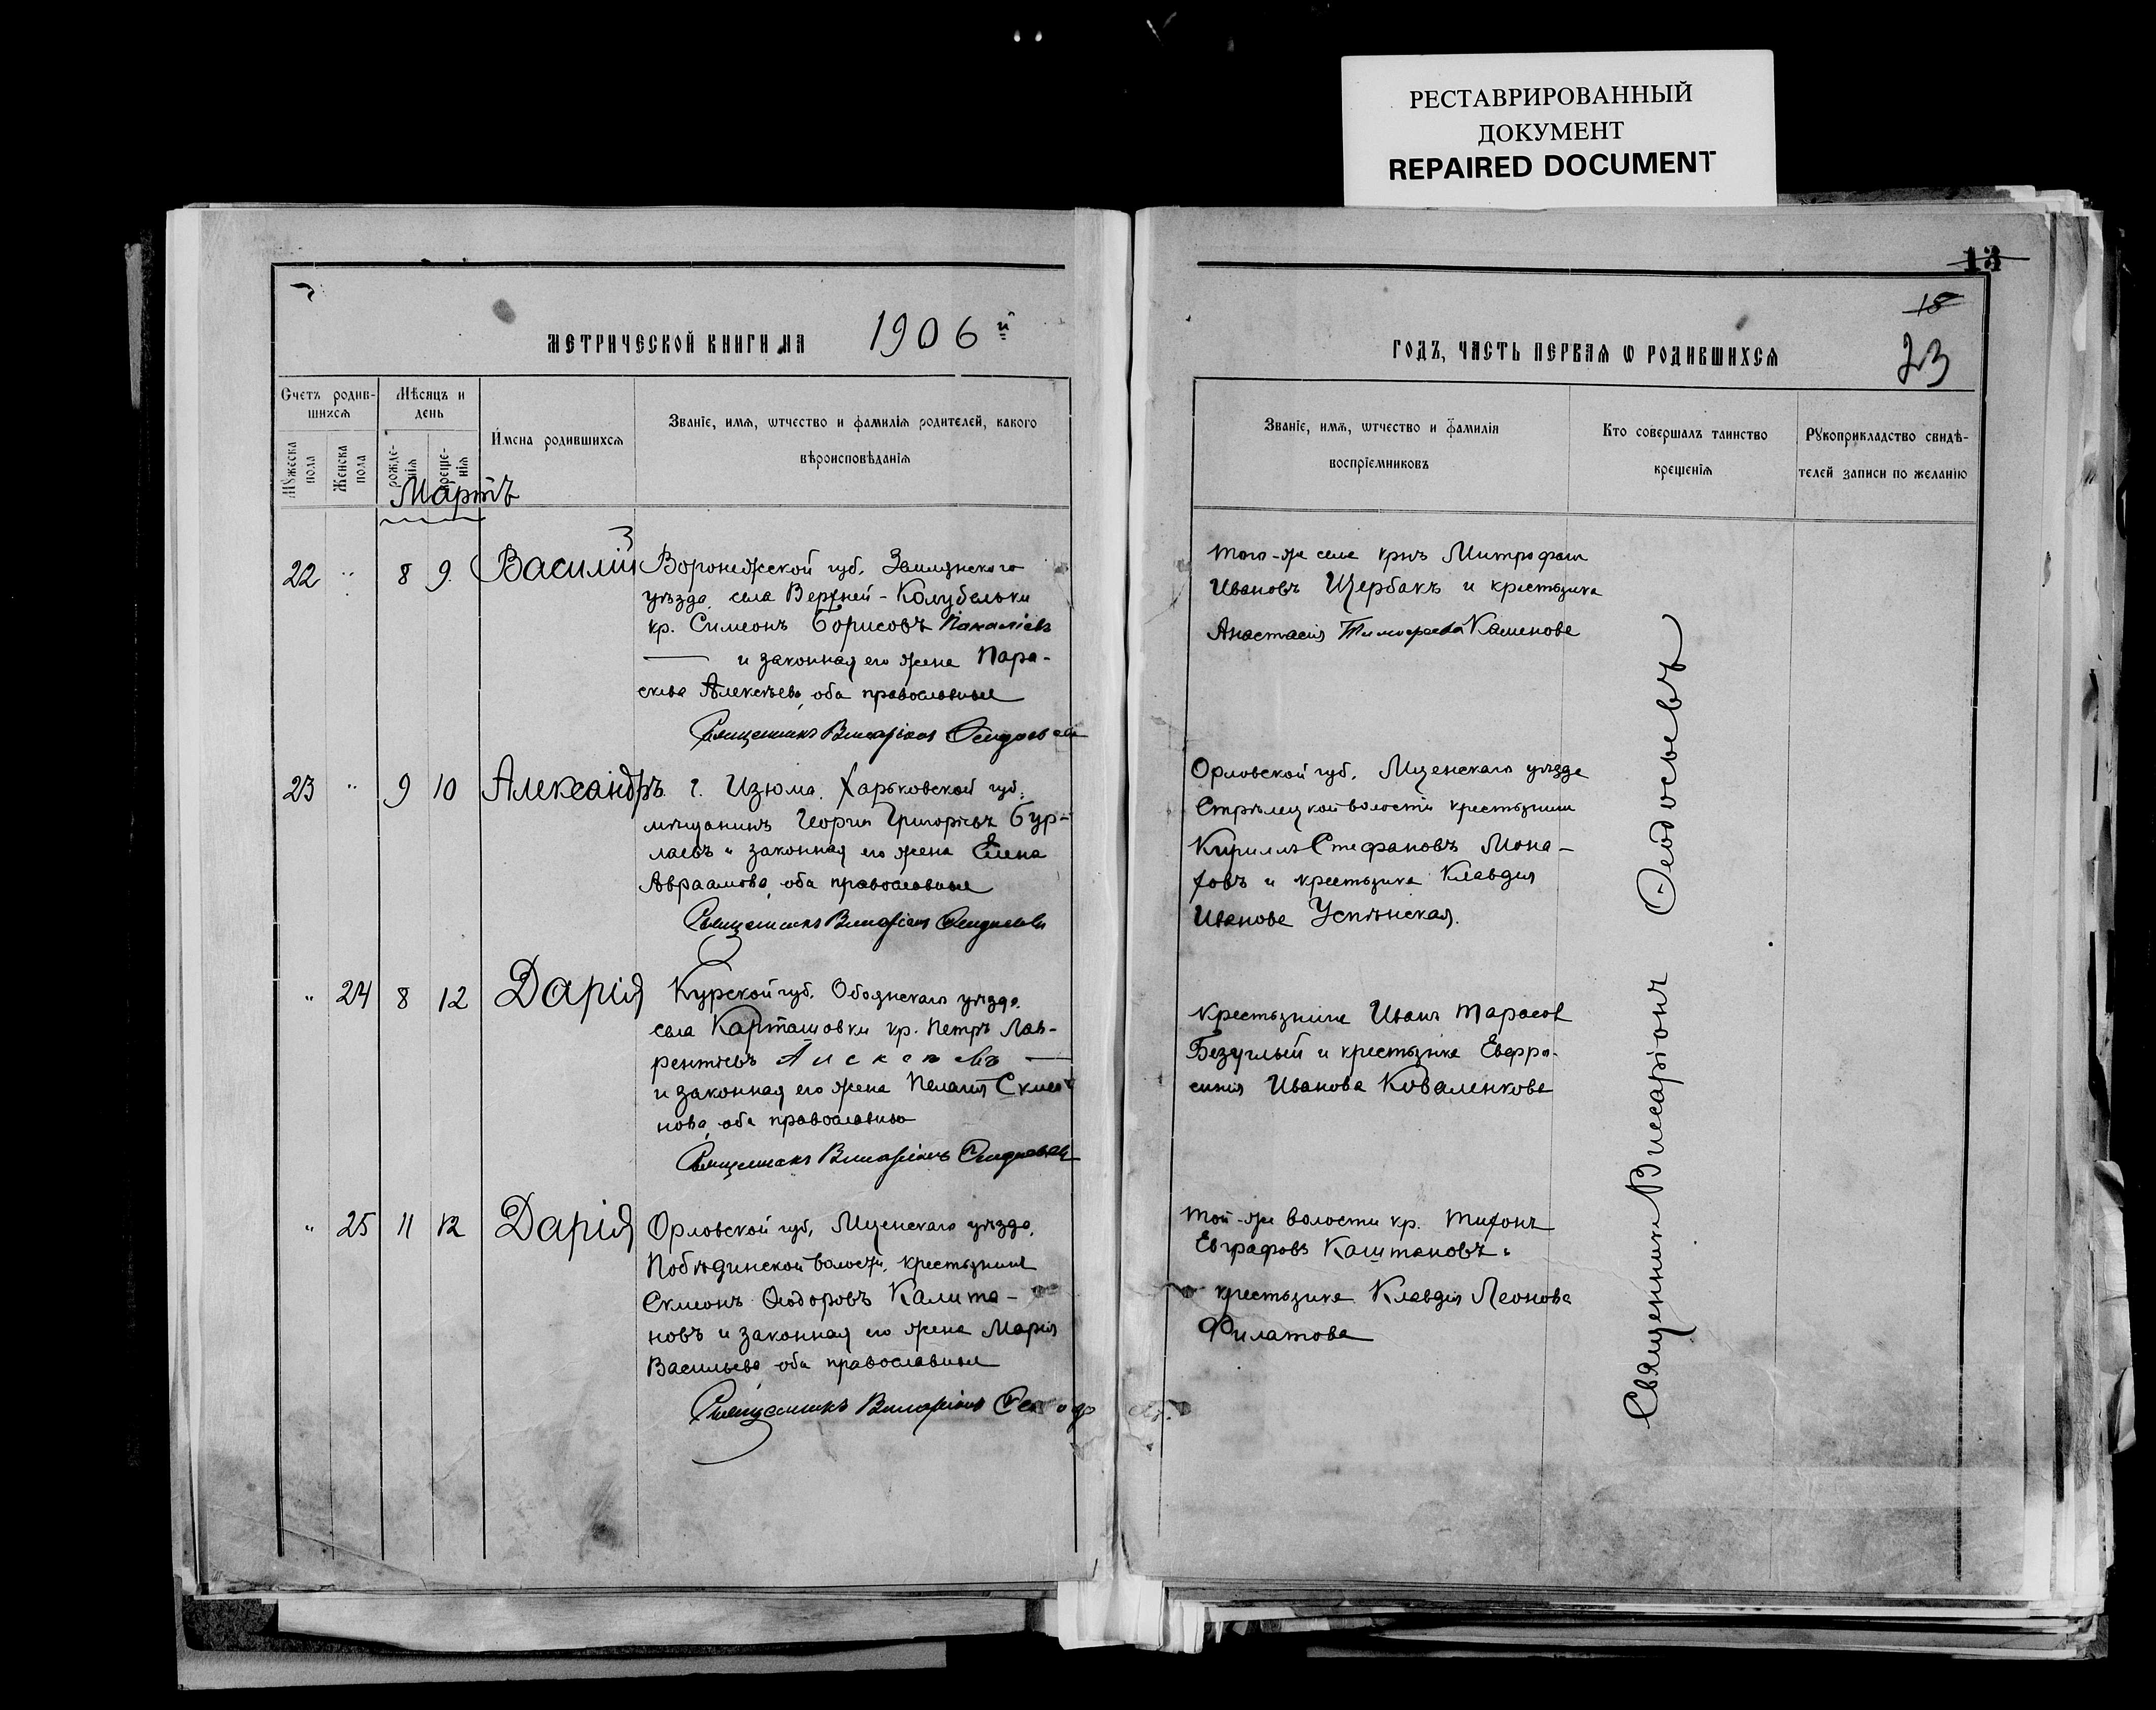 РЕСТАВРИРОВАННЫЙ
ДОКУМЕНТ
REPAIRED DOCUMENT
МЕТРИЧЕСКОЙ КНИГИ НА 1906й
Счетъ родив-
шихся
Мѣсяцъ и
день
Имена родившихся
Званіе, имя, ѡтчество и фамилія родителей, какого
вѣроисповѣданія
Мужеска
пола
Женска
пола
рожде-
нія
креще-
нія
Мартъ
3
22 " 8 9. Василій
Воронежской губ. Землянского
уѣзда, села Верхней-Колубельки
кр. Симеонъ Борисовъ
и законная его жена Пара-
скева Алексѣева, оба православные
Священникъ Виссаріонъ Ѳеодосьевъ
23 " 9 10 Александръ.
г. Изюма, Харьковской губ.
мѣщанинъ Георгій Григорьевъ Бур-
лаевъ и законная его жена Елена
Авраамова, оба православные
Священникъ Виссаріонъ Ѳеодосьевъ
" 24 8 12 Дарія
Курской губ. Обоянскаго уѣзда.
села Карташовки кр. Петръ Лав-
рентьевъ
и законная его жена Пелагія
нова, оба православные
Священникъ Виссаріонъ Ѳеодосьевъ
" 25 11 12 Дарія
Орловской губ, Мценскаго уѣзда,
Побѣдинской волости, крестьянинъ
Ѳеодоровъ
новъ и законная его жена Марія
Васильева, оба православные
Священникъ Виссаріонъ Ѳеодосьевъ
13
18
23
ГОДЪ, ЧАСТЬ ПЕРВАЯ Ѡ РОДИВШИХСЯ
Званіе, имя, ѡтчество и фамилія
воспріемниковъ
Кто совершалъ таинство
крещенія
Рукоприкладство свидѣ-
телей записи по желанію
того-же села крнъ Митрофанъ
Ивановъ Щербакъ и крестьянка
Анастасія Тимофеева Каменова
Орловской губ. Мценскаго уѣзда
Стрѣлецкой волости крестьянинъ
Кириллъ Стефановъ Мона-
ховъ и крестьянка Клавдія
Иванова Успѣнская.
крестьянинъ Иванъ Тарасов
Безуглый и крестьянка Евфро-
синія Иванова Коваленкова
Той-же волости кр. Тихонъ
Евграфовъ Каштановъ и
крестьянка Клавдія Леонова
Филатова
Священникъ Виссаріонъ Ѳеодосьевъ